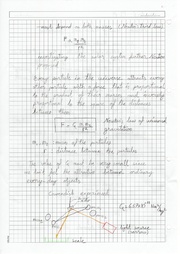 must depend on both masses (Newton's Third law)
F ∝ m₁ m₂ / r²
investigating the solar system further Newton
proposed
Every particle in the universe attracts every
other particle with a force that is proportional
to the product of their masses and inversely
proportional to the square of the distance
between them
F = G m₁ m₂ / r² Newton's law of universal
gravitation
m₁, m₂ mass of the particles
r distance between the particles
The value of G must be very small since
we don't feel the attraction between ordinary
everyday objects
Cavendish experiment
G = 6.67x10⁻¹¹ Nm²/kg²
light source
(narrow)
scale